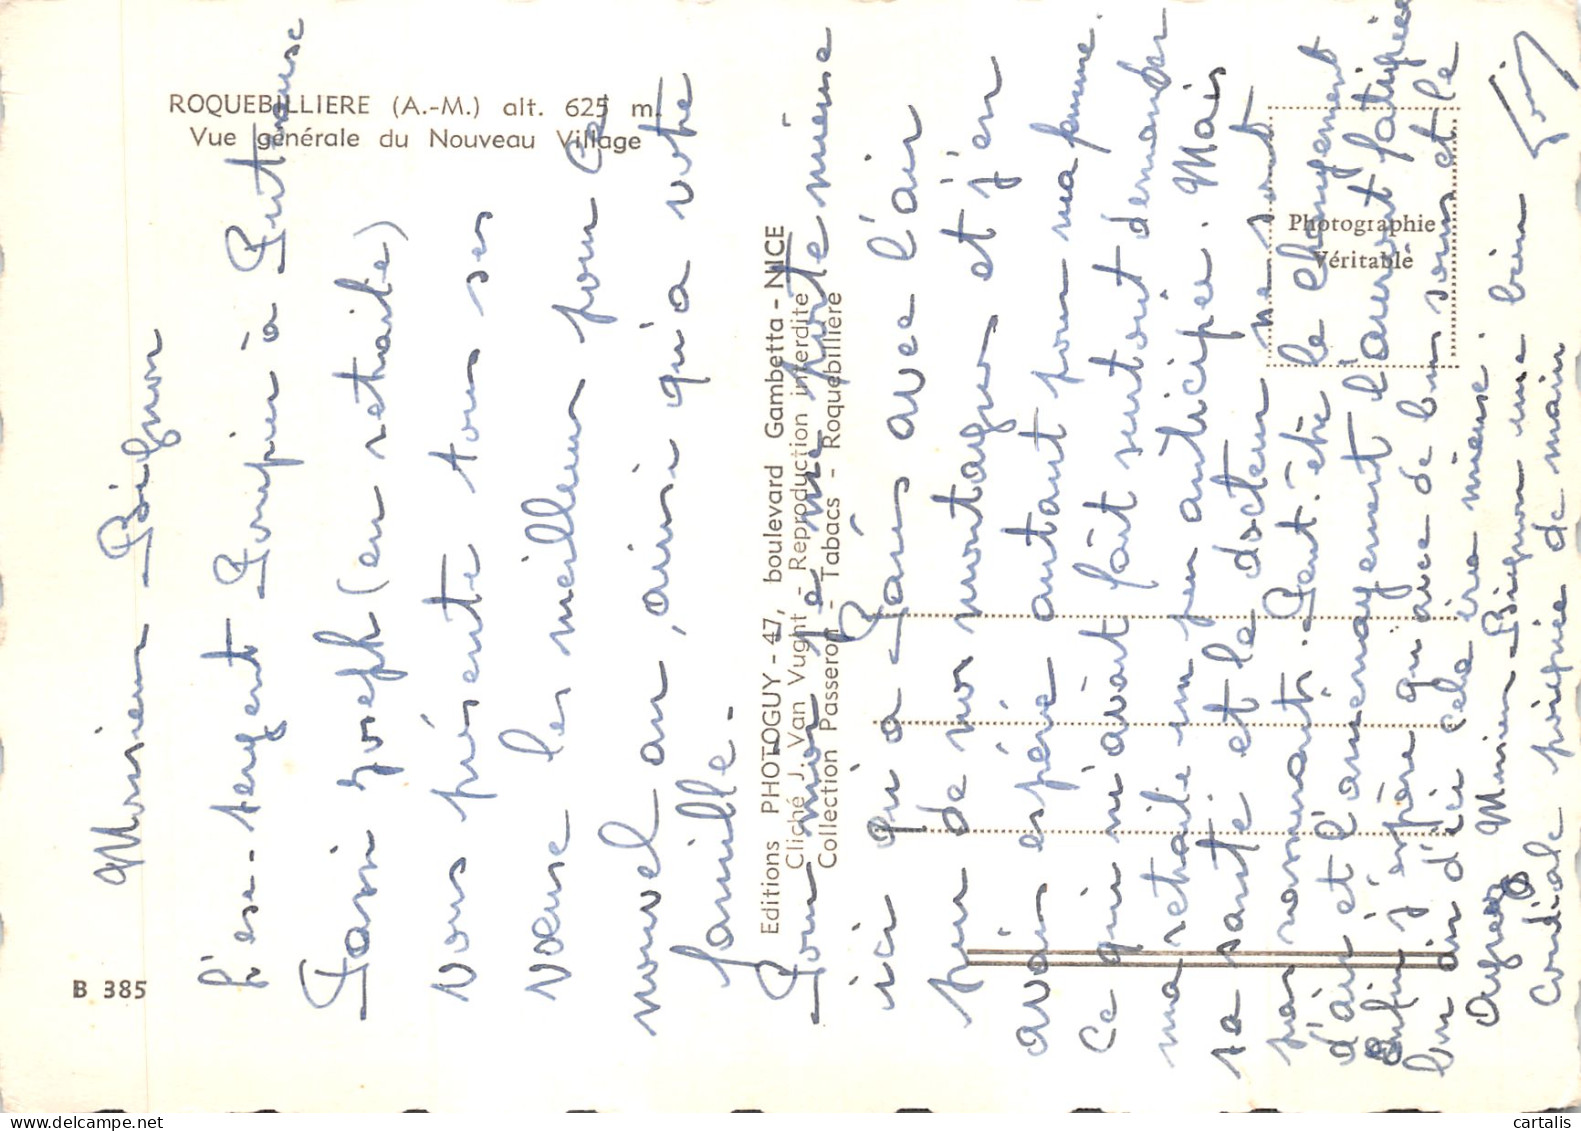 ROQUEBILLIERE (A.-M.) alt. 625 m.
Vue générale du Nouveau Village
B 385
Editions PHOTOGUY - 47, boulevard Gambetta - NICE
Cliché J. Van Vught - Reproduction interdite
Collection Passeron - Tabacs - Roquebillière
Photographie
Véritable
Monsieur Bignon
l'ex-sergent Pompier à
Joseph (en retraite)
vous présente tous ses
voeux les meilleurs pour ce
nouvel an, ainsi qu'à votre
famille.-
Pour moi je me porte mieux
ici qu'à Paris avec l'air
pur de nos montagnes et j'en
avais espéré autant pour ma femme.
Ce qui m'avait fait surtout demander
ma retraite un peu anticipée. Mais
sa santé et le docteur ne sont
pas rassurants. Peut-être le changement
d'air et l'aménagement l'auront fatiguée
Enfin j'espère qu'avec de bons soins et le
bon air d'ici cela ira mieux.
Agréez Monsieur Bignon une bien
cordiale poignée de main